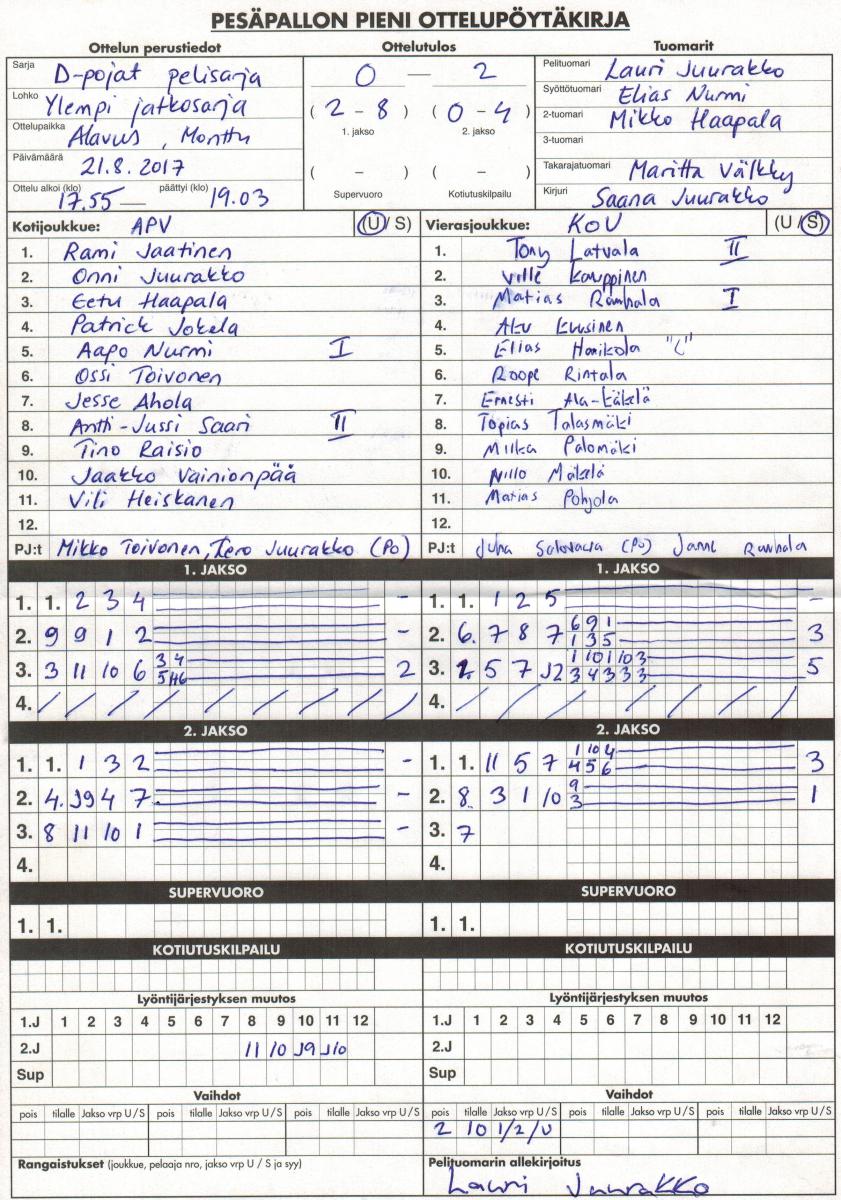 PESÄPALLON PIENI OTTELUPÖYTÄKIRJA
Ottelun perustiedot Ottelutulos Tuomarit
Sarja D-pojat pelisarja
Lohko Ylempi jatkosarja
Ottelupaikka Alavus, Monttu
Päivämäärä 21.8.2017
Ottelu alkoi (klo) 17.55 — päättyi (klo) 19.03
0 — 2
(2 - 8) (0 - 4)
1. jakso 2. jakso
( - ) ( - )
Supervuoro Kotiutuskilpailu
Pelituomari Lauri Juurakko
Syöttötuomari Elias Nurmi
2-tuomari Mikko Haapala
3-tuomari
Takarajatuomari Maritta Välkky
Kirjuri Saana Juurakko
Kotijoukkue: APV (U / S)
1. Rami Jaatinen
2. Onni Juurakko
3. Eetu Haapala
4. Patrick Jokela
5. Aapo Nurmi I
6. Ossi Toivonen
7. Jesse Ahola
8. Antti-Jussi Saari II
9. Tino Raisio
10. Jaakko Vainionpää
11. Vili Heiskanen
12.
PJ:t Mikko Toivonen, Tero Juurakko (PO)
Vierasjoukkue: KoU (U / S)
1. Tony Latvala II
2. Ville Kauppinen
3. Matias Ranhala I
4. Aku Kuusinen
5. Elias Harikola "C"
6. Roope Rintala
7. Ernesti Ala-Käkelä
8. Topias Talasmäki
9. Miika Palomäki
10. Niilo Mäkelä
11. Matias Pohjola
12.
PJ:t Juha (PO) Janne Ranhala
1. JAKSO
1. 1. 2 3 4 -
2. 9 9 1 2 -
3. 3 11 10 6 3 4 5 2
4. / / / / / / / /
2. JAKSO
1. 1. 1 3 2 -
2. 4. J9 4 7 -
3. 8 11 10 1 -
4.
SUPERVUORO
1. 1.
KOTIUTUSKILPAILU
Lyöntijärjestyksen muutos
1.J 1 2 3 4 5 6 7 8 9 10 11 12
2.J 11 10 J9 J10
Sup
Vaihdot
pois tilalle Jakso vrp U / S pois tilalle Jakso vrp U / S pois tilalle Jakso vrp U / S
Rangaistukset (joukkue, pelaaja nro, jakso vrp U / S ja syy)
1. JAKSO
1. 1. 1 2 5 -
2. 6. 7 8 7 6 9 1 1 3 5 3
3. 5 7 J2 1 10 1 10 3 3 4 3 3 3 5
4. / / / / / / / /
2. JAKSO
1. 1. 11 5 7 1 10 4 4 5 6 3
2. 8 3 1 10 9 3 1
3. 7
4.
SUPERVUORO
1. 1.
KOTIUTUSKILPAILU
Lyöntijärjestyksen muutos
1.J 1 2 3 4 5 6 7 8 9 10 11 12
2.J
Sup
Vaihdot
pois tilalle Jakso vrp U / S pois tilalle Jakso vrp U / S pois tilalle Jakso vrp U / S
2 10 1/2/U
Pelituomarin allekirjoitus
Lauri Juurakko